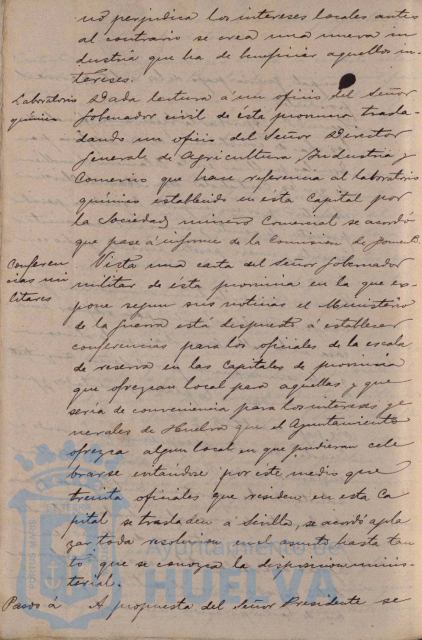 no perjudica los intereses locales antes
al contrario se crea una nueva in
dustria que ha de beneficiar aquellos in-
tereses.
Laboratorio
químico
Dada lectura á un oficio del Señor
Gobernador civil de ésta provincia trasla-
dando un oficio del Señor Director
General de Agricultura, Industria y
Comercio que hace referencia al laboratorio
químico establecido en esta Capital por
la Sociedad minero Comercial se acordó
que pase á informe de la Comision de
Conferen
cias mi
litares
Vista una carta del Señor Gobernador
militar de ésta provincia en la que ex-
pone segun sus noticias el Ministerio
de la Guerra está dispuesto á establecer
conferencias para los oficiales de la escala
de reserva en las capitales de provincia
que ofrezcan local para aquellas y que
sería de conveniencia para los intereses ge
nerales de Huelva que el Ayuntamiento
ofrezca algun local en que pudieran cele
brarse evitandose por este medio que
treinta oficiales que residen en esta Ca
pital se trasladen a Sevilla, se acordó apla
zar toda resolucion en el asunto hasta tan
to que se conozca la disposicion minis-
terial.
Paseo á
A propuesta del Señor Presidente se
PORTUS MARIS
Ayuntamiento de
HUELVA